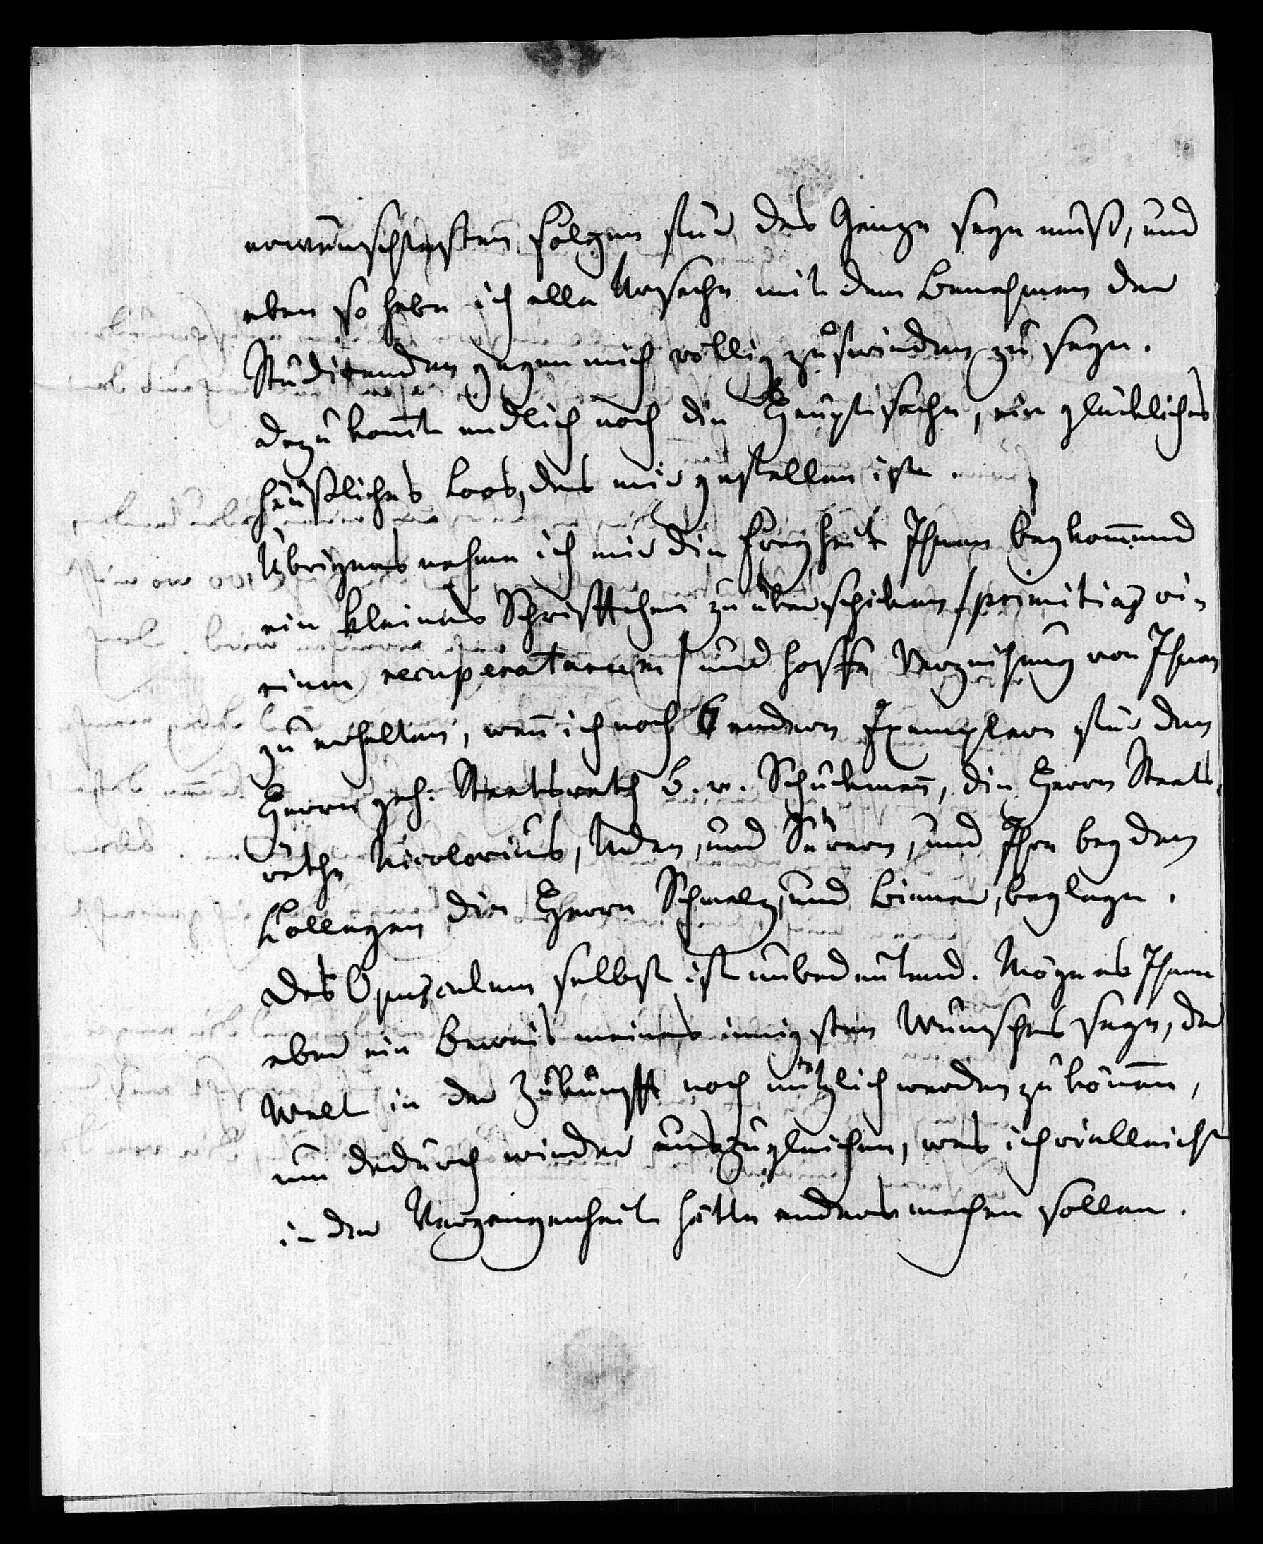 erwünschtesten Folgen für das Ganze seyn muß, und
eben so habe ich alle Ursache mit dem Benehmen der
Studirenden gegen mich völlig zufrieden zu seyn.
Dazu kom̅t endlich noch die Hauptsache, ein glückliches
häußliches Loos, das mir gefallen ist.
Übrigens nehme ich mir die Freyheit Ihnen beykom̅end
ein kleines Schrifftchen zu überschicken /primitias vi-
rium recuperatarum/ und hoffe Verzeihung von Ihnen
zu erhalten, wen̅ ich noch 6 andere Exemplare für den
Herrn geh: Staatsrath B. v. Schuckman̅, die Herrn Staats-
räthe Nicolovius, Uden, und Süvern, und Ihre beyden
Kollegen die Herrn Schmalz, und Biener, beylege.
Das Opusculum selbst ist unbedeutend. Möge es Ihnen
aber ein Beweis meines innigsten Wunsches seyn, der
Welt in der Zukunfft noch nützlich werden zu kön̅en,
um dadurch wieder auszugleichen, was ich vielleicht
in der Vergangenheit hätte anders machen sollen.